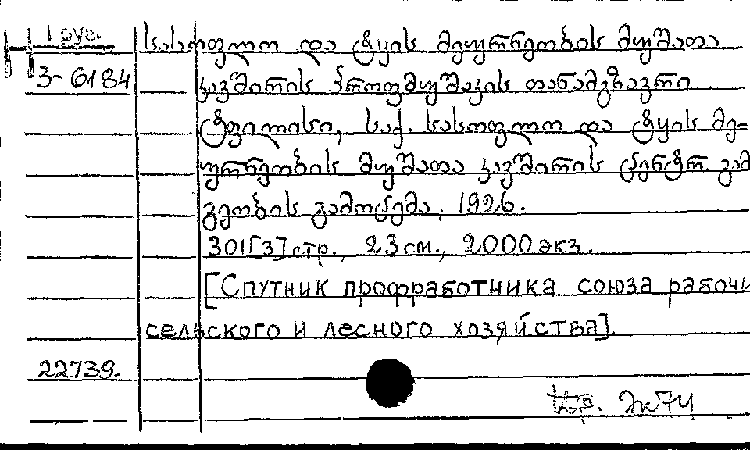 1 груз.
სასოფლო და ტყის მეურნეობის მუშათა
3-6184
კავშირის პროფმუშაკის თანამგზავრი
ტფილისი, საქ. სასოფლო და ტყის მე-
ურნეობის მუშათა კავშირის ცენტრ. გამ
გეობის გამოცემა, 1926.
301[3] стр., 23 см., 2000 экз.
[Спутник профработника союза рабочи
сельского и лесного хозяйства].
22739.